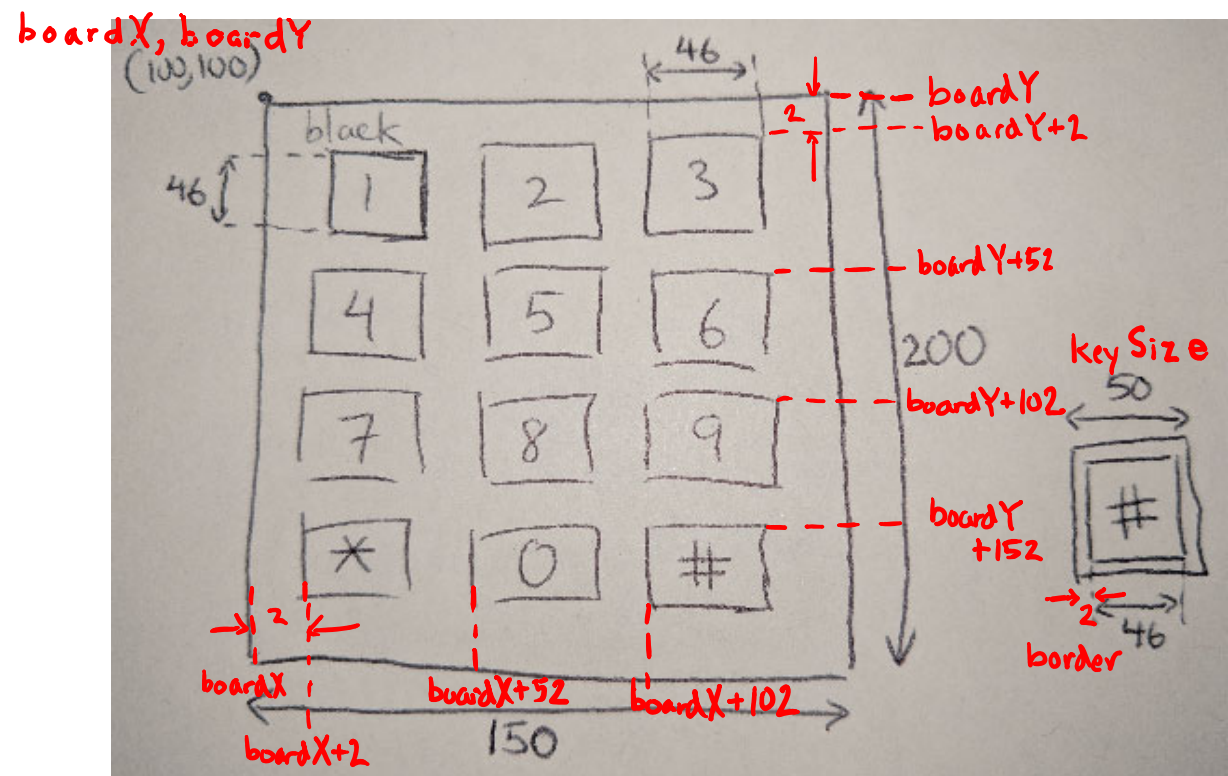 boardX, boardY
(100,100)
46
boardY
2
boardY+2
black
46
1
2
3
boardY+52
4
5
6
200
key Size
50
boardY+102
7
8
9
#
boardY
+152
*
0
#
2
2
46
border
boardX
boardX+52
boardX+102
150
boardX+2